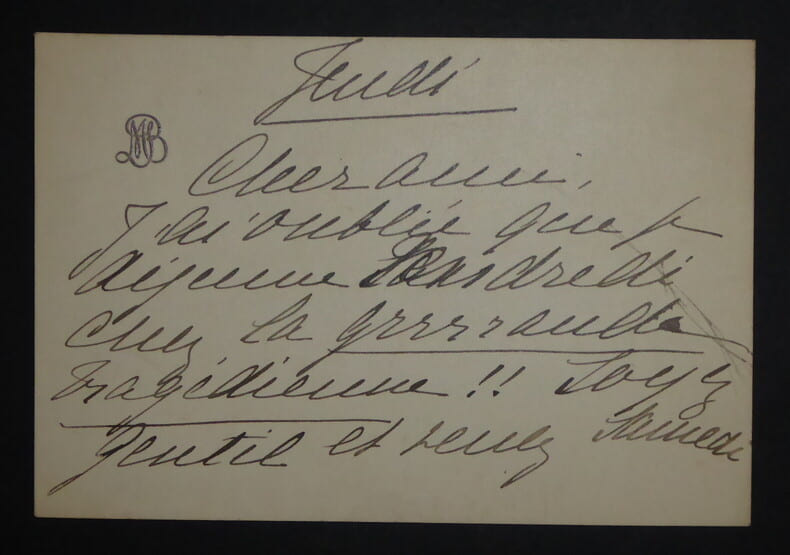 Jeudi
MB
Cher ami,
J'ai oublié que je
déjeune Vendredi
chez la grrrrande
tragédienne !! Soyez
gentil et venez Samedi